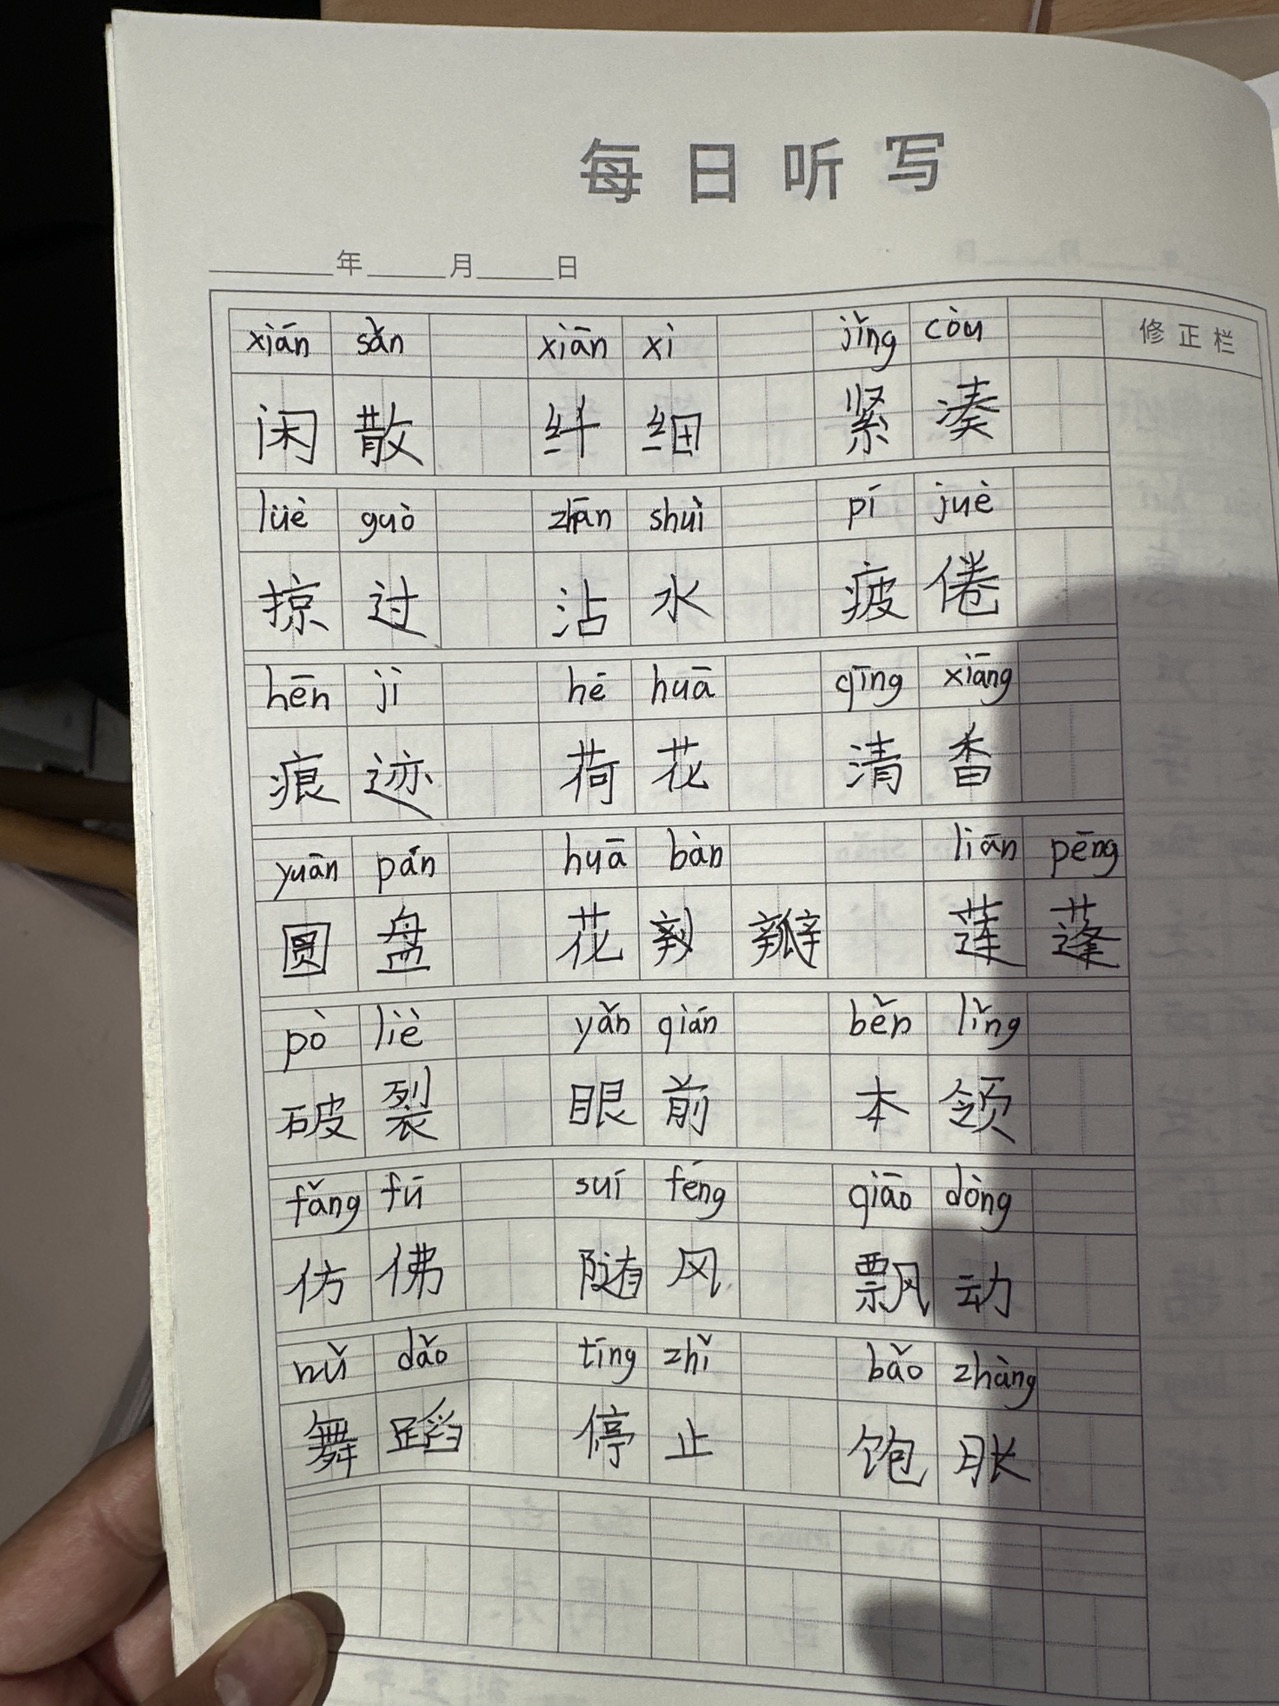 每日听写
年 月 日
xiān sǎn xiān xì jǐng còu 修正栏
闲 散 纤 细 紧 凑
lüè guò zhān shuǐ pí juè
掠 过 沾 水 疲 倦
hēn jì hē huā qīng xiāng
痕 迹 荷 花 清 香
yuān pán huā bàn liān pēng
圆 盘 花 瓣 莲 蓬
pò liè yǎn qián běn lǐng
破 裂 眼 前 本 领
fǎng fū suí fēng qiāo dòng
仿 佛 随 风 飘 动
wǔ dǎo tíng zhǐ bǎo zhàng
舞 蹈 停 止 饱 胀